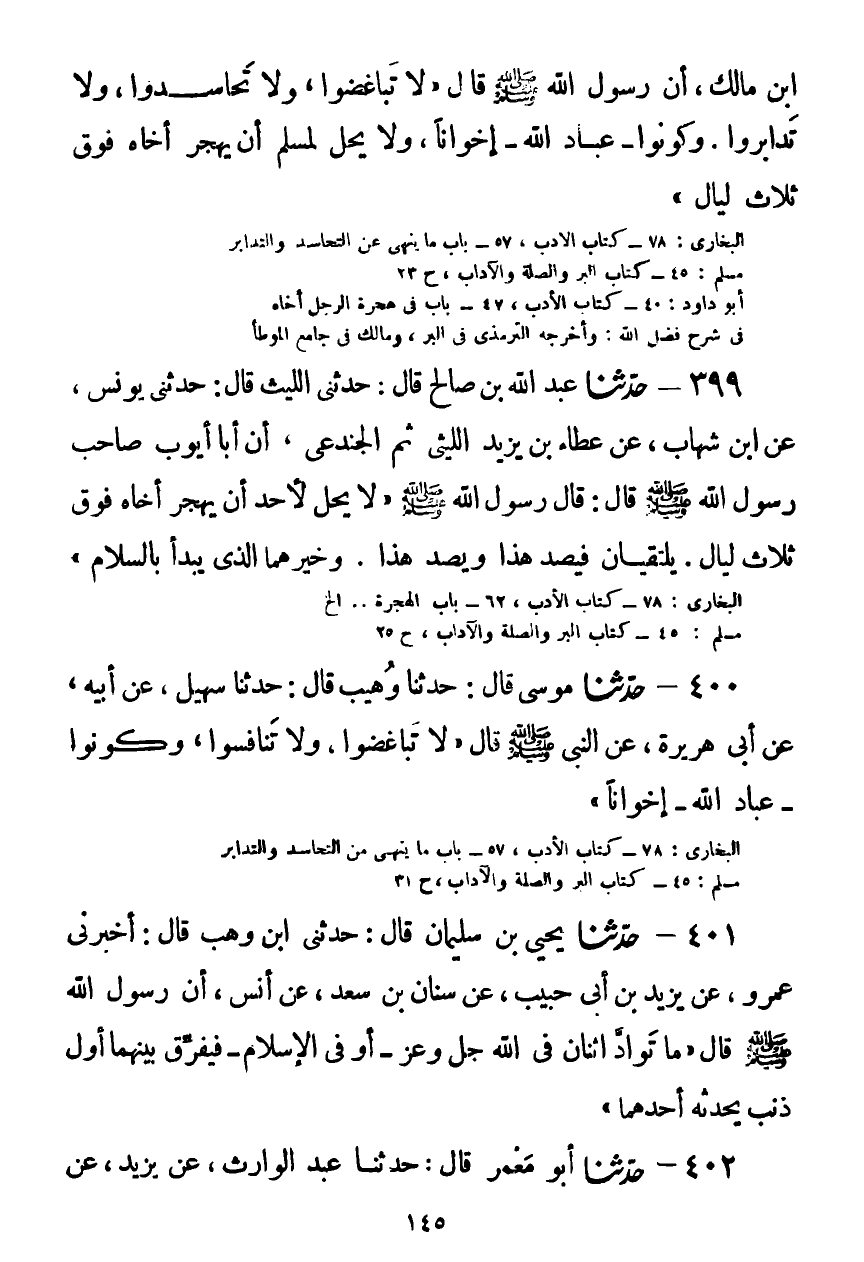 ابن مالك ، أن رسول الله ﷺ قال « لا تَباغضوا ، ولا تَحاســدوا ، ولا
تَدابروا . وكونوا ـ عبـاد الله ـ إخواناً ، ولا يحل لمسلم أن يهجر أخاه فوق
ثلاث ليال »
البخارى : ٧٨ ـ كتاب الادب ، ٥٧ ـ باب ما ينهى عن التحاسد والتدابر
مسلم : ٤٥ ـ كتاب البر والصلة والآداب ، ح ٢٣
أبو داود : ٤٠ ـ كتاب الأدب ، ٤٧ ـ باب فى هجرة الرجل أخاه
فى شرح فضل الله : وأخرجه الترمذى فى البر ، ومالك فى جامع الموطأ
٣٩٩ ـ حدّثنا عبد الله بن صالح قال : حدثنى الليث قال : حدثنى يونس ،
عن ابن شهاب ، عن عطاء بن يزيد الليثى ثم الجندعى ، أن أبا أيوب صاحب
رسول الله ﷺ قال : قال رسول الله ﷺ « لا يحل لأحد أن يهجر أخاه فوق
ثلاث ليال . يلتقيـان فيصد هذا ويصد هذا . وخيرهما الذى يبدأ بالسلام »
البخارى : ٧٨ ـ كتاب الأدب ، ٦٢ ـ باب الهجرة .. الخ
مسلم : ٤٥ ـ كتاب البر والصلة والآداب ، ح ٢٥
٤٠٠ ـ حدّثنا موسى قال : حدثنا وُهيب قال : حدثنا سهيل ، عن أبيه ،
عن أبى هريرة ، عن النبى ﷺ قال « لا تَباغضوا ، ولا تَنافسوا ، وكونوا
ـ عباد الله ـ إخواناً »
البخارى : ٧٨ ـ كتاب الأدب ، ٥٧ ـ باب ما ينهى من التحاسد والتدابر
مسلم : ٤٥ ـ كتاب البر والصلة والآداب ، ح ٣١
٤٠١ ـ حدّثنا يحيى بن سليمان قال : حدثنى ابن وهب قال : أخبرنى
عمرو ، عن يزيد بن أبى حبيب ، عن سنان بن سعد ، عن أنس ، أن رسول الله
ﷺ قال « ما تَوادَّ اثنان فى الله جل وعز ـ أو فى الإسلام ـ فيفرّق بينهما أول
ذنب يحدثه أحدهما »
٤٠٢ ـ حدّثنا أبو مَعْمر قال : حدثنـا عبد الوارث ، عن يزيد ، عن
١٤٥